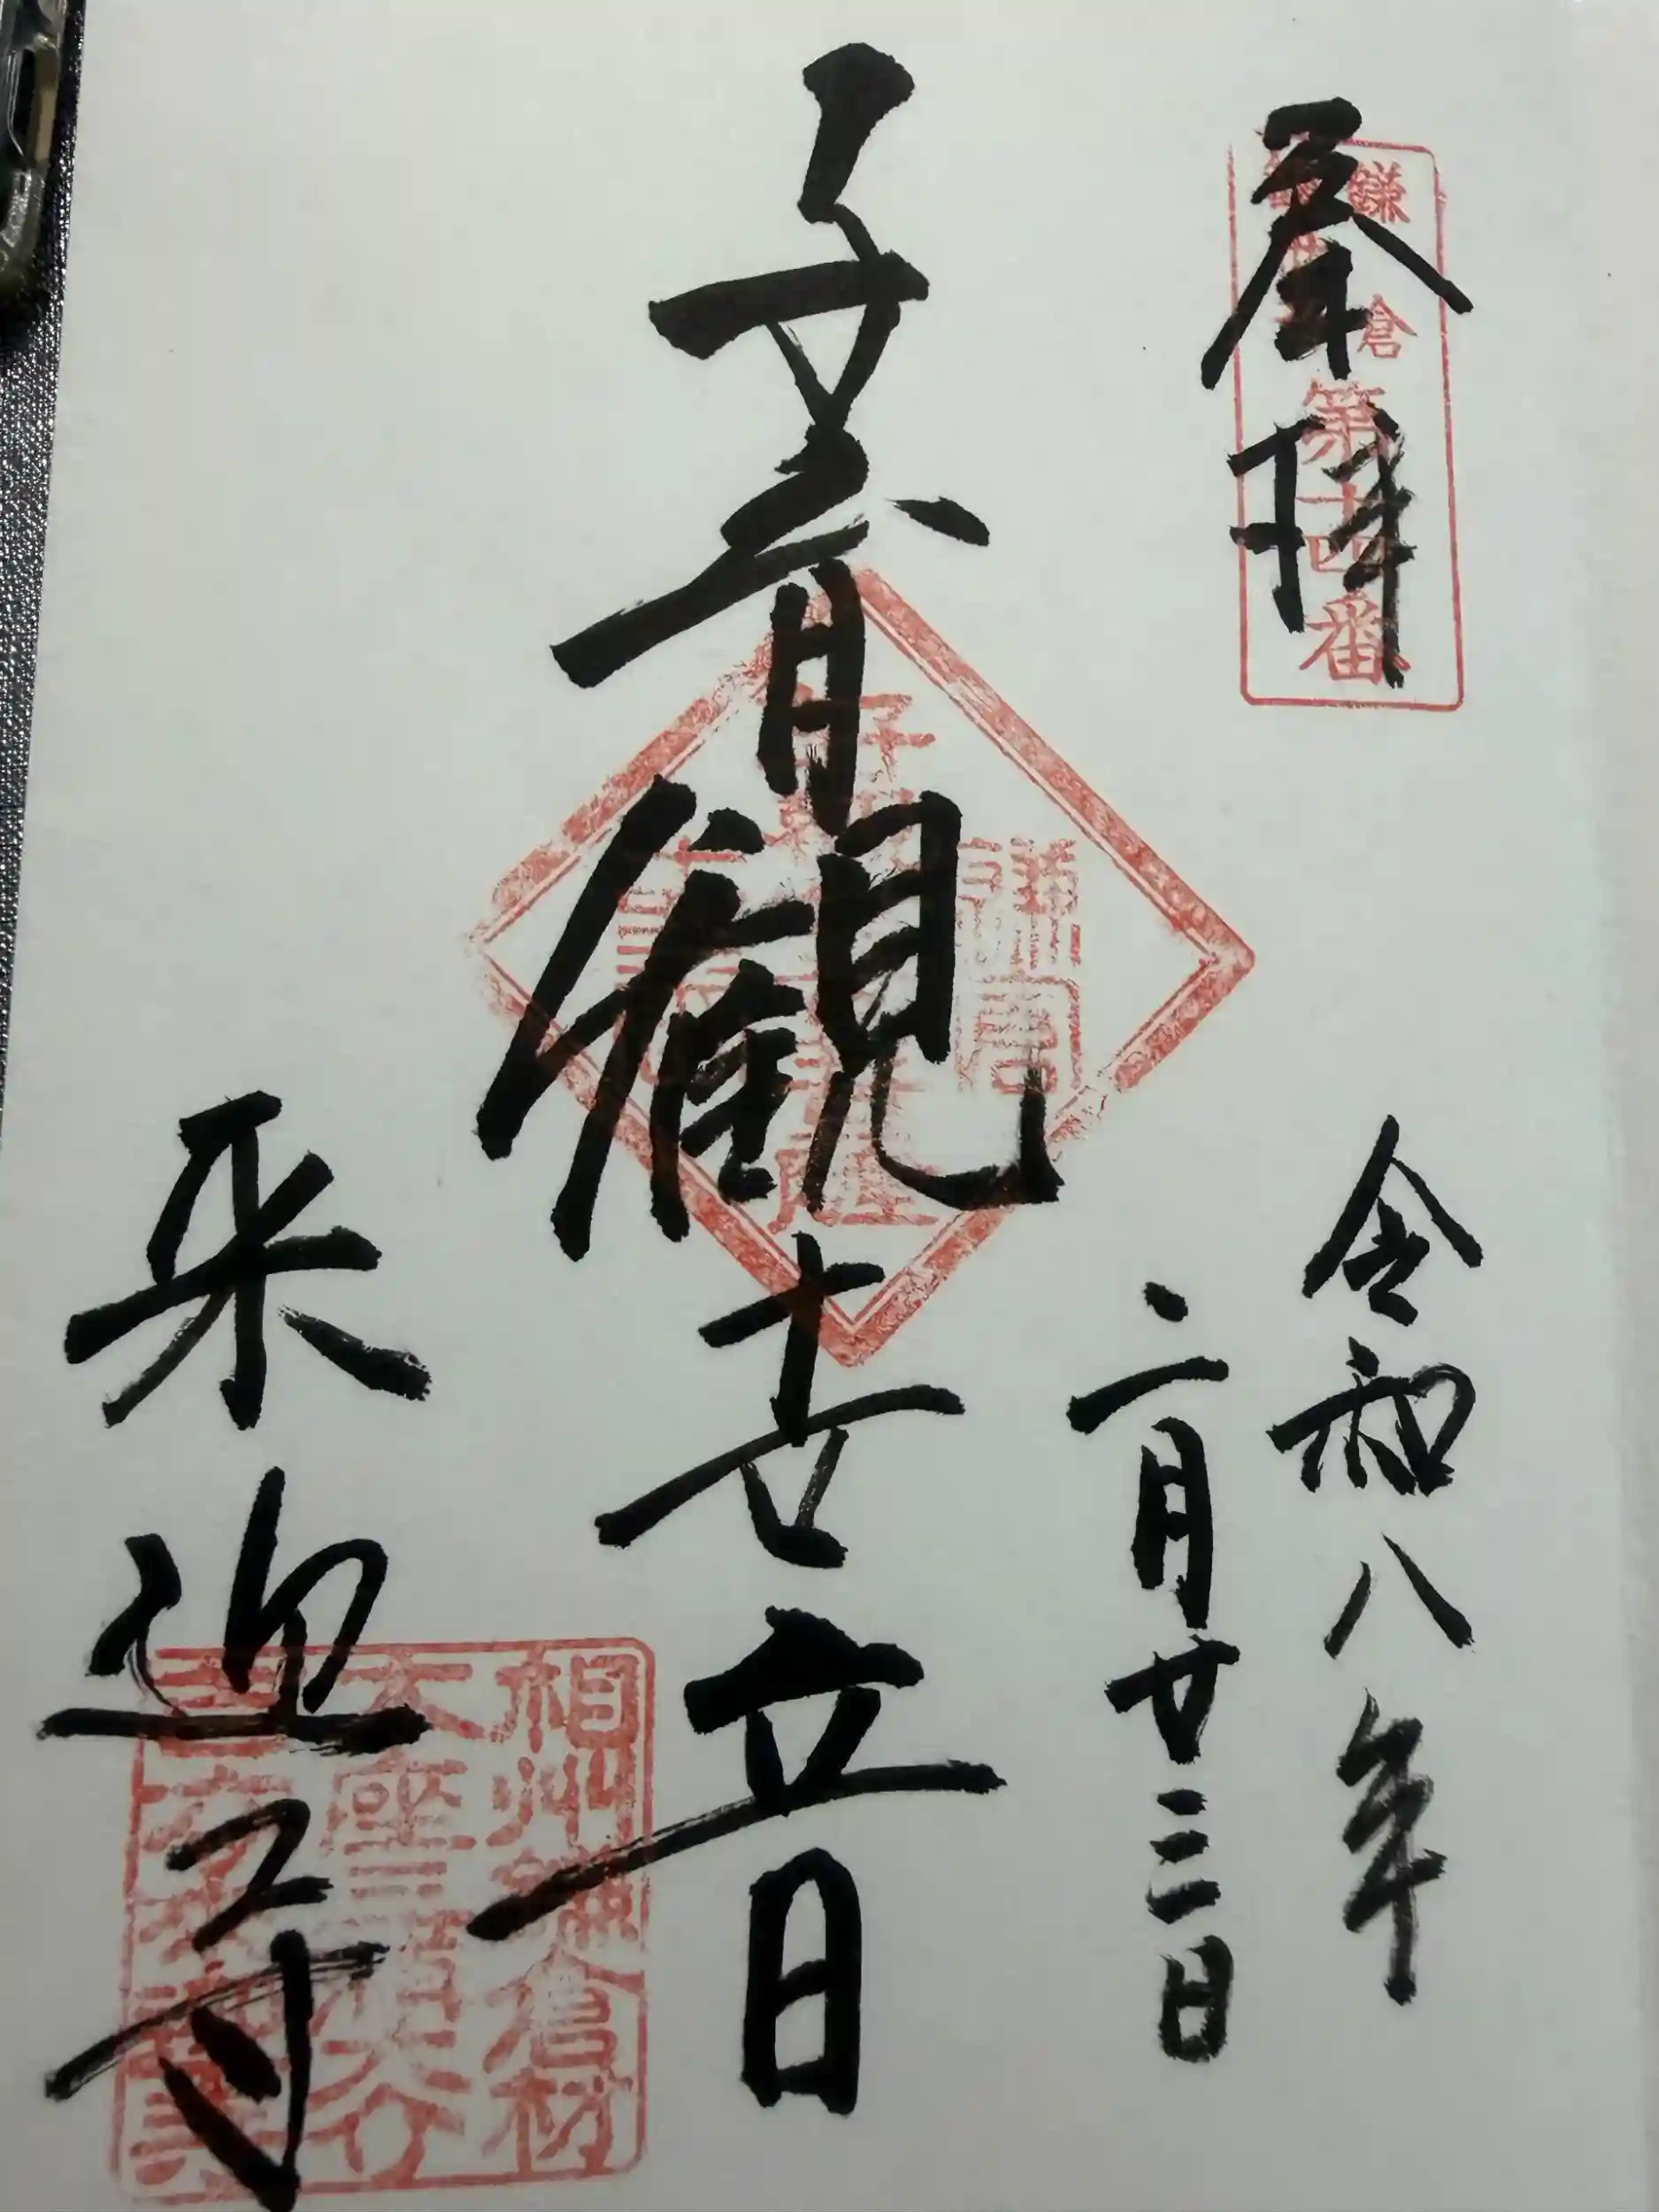 奉拝
鎌倉
第十四番
令和八年
二月廿三日
子育観世音
来迎寺
相州鎌倉材
木座